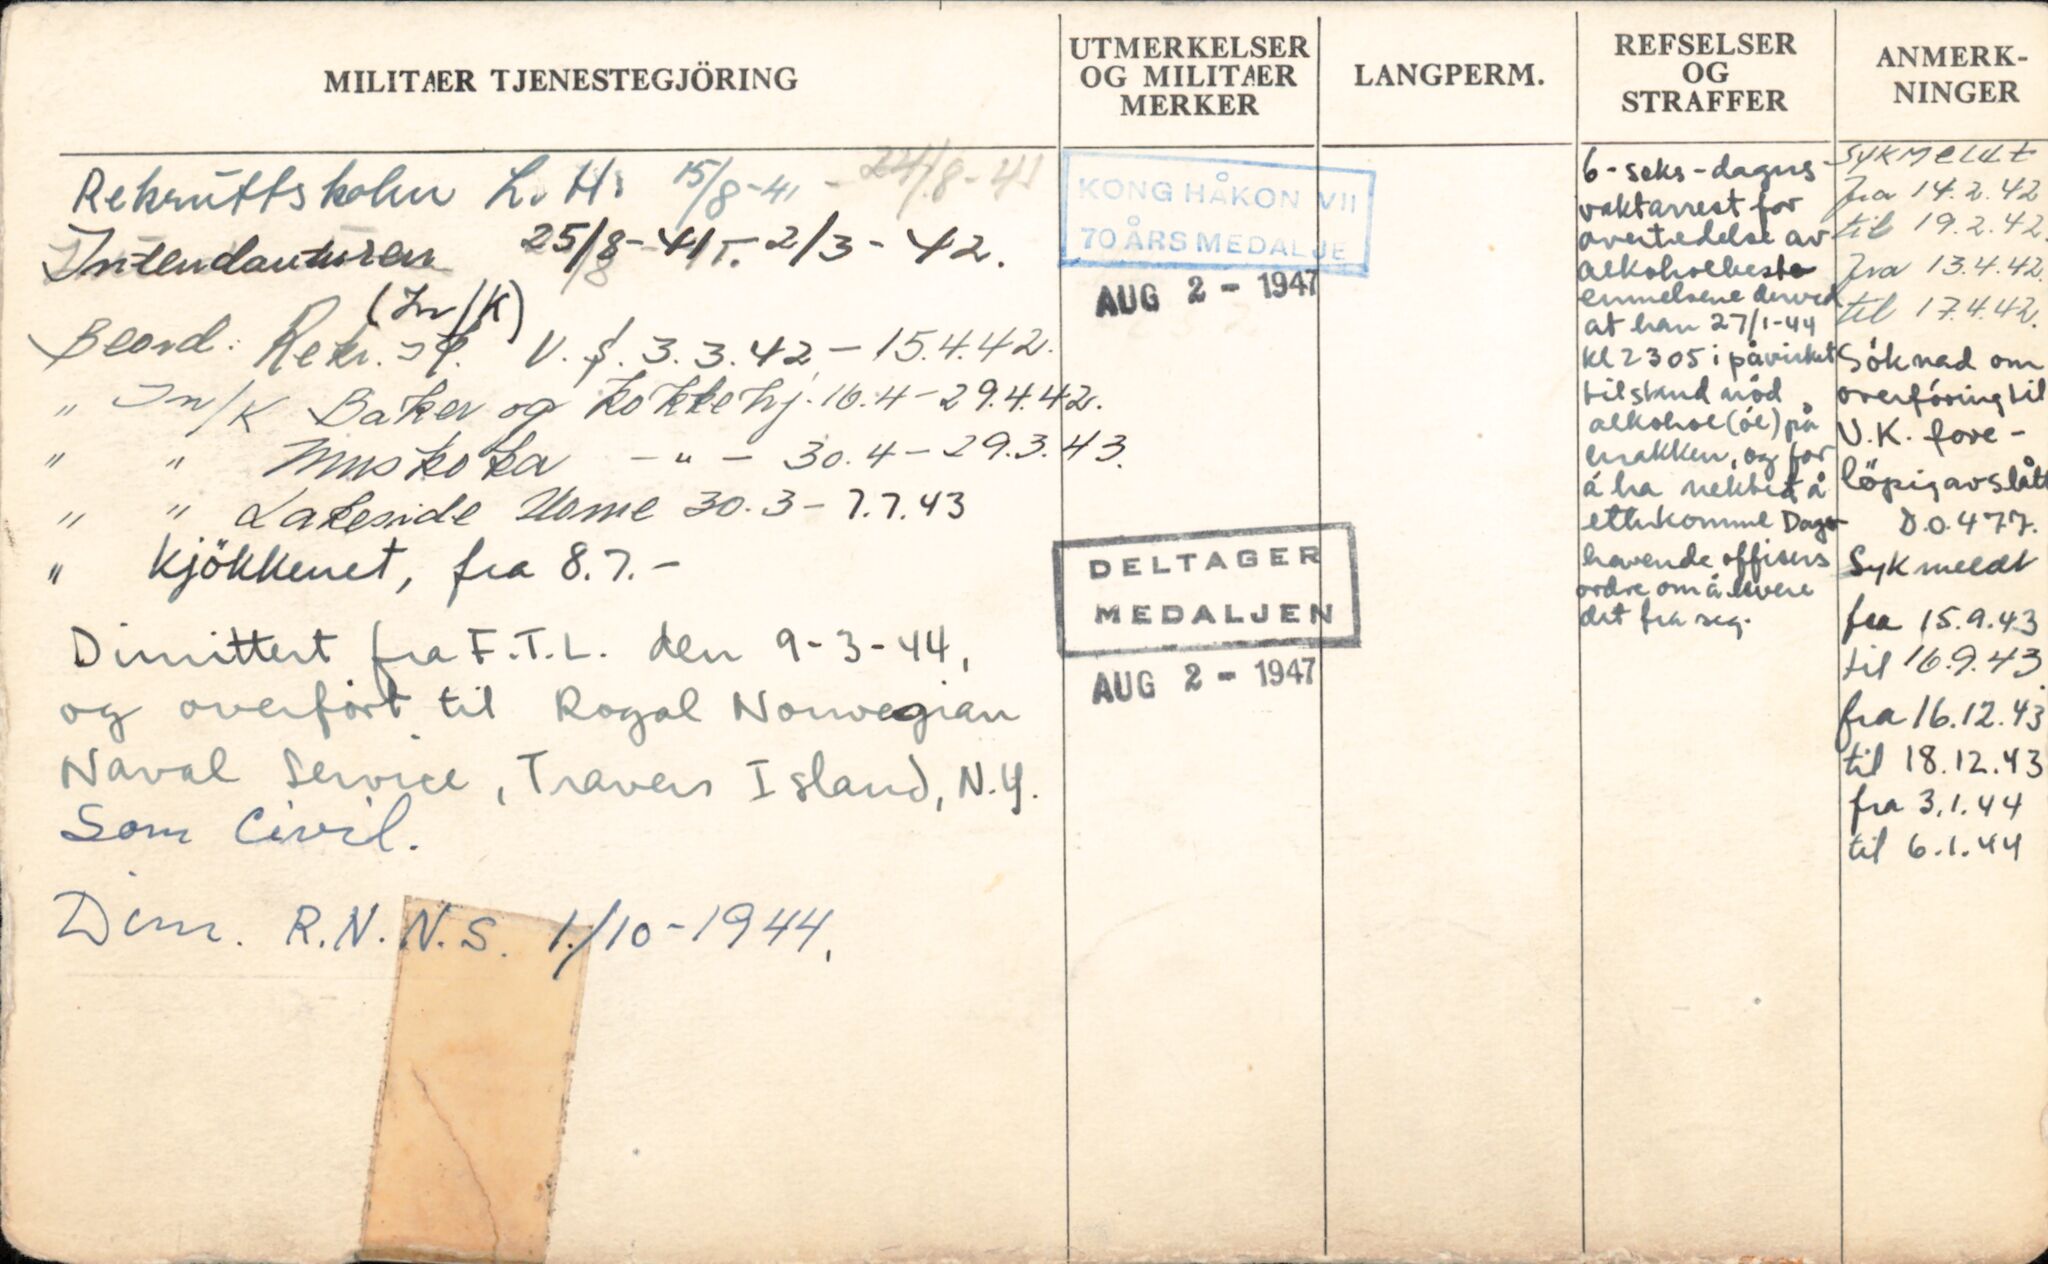 MILITÆR TJENESTEGJÖRING
Rekruttskolen L. H. 15/8-41 - 24/8-41
Intendanturen 25/8-41 T. 2/3-42.
(In/K)
Beord: Rekr. sk. V. f. 3.3.42 - 15.4.42.
" In/K Baker og kokkehj. 16.4-29.4.42.
" " Muskoka - " - 30.4-29.3.43.
" " Lakeside Home 30.3-7.7.43
" Kjökkenet, fra 8.7.-
Dimittert fra F.T.L. den 9-3-44,
og overfört til Royal Norwegian
Naval Service, Travers Island, N.Y.
Som Civil.
Dim. R.N.N.S. 1./10-1944.
UTMERKELSER
OG MILITÆR
MERKER
KONG HÅKON VII
70 ÅRS MEDALJE
AUG 2 - 1947
DELTAGER
MEDALJEN
AUG 2 - 1947
LANGPERM.
REFSELSER
OG
STRAFFER
6-seks-dagers
vaktarrest for
overtredelse av
alkoholbeste
emmelsene derved
at han 27/1-44
kl 2305 i påvirket
tilstand nöd
alkohol (öl) på
brakken, og for
å ha nektet å
etterkomme Dag-
havende offisers
ordre om å levere
det fra seg.
ANMERK-
NINGER
Sykmeldt
fra 14.2.42
til 19.2.42.
fra 13.4.42.
til 17.4.42.
Söknad om
overföring til
U.K. fore-
löpig avslått
D.O.477.
Sykmeldt
fra 15.9.43
til 16.9.43
fra 16.12.43
til 18.12.43
fra 3.1.44
til 6.1.44